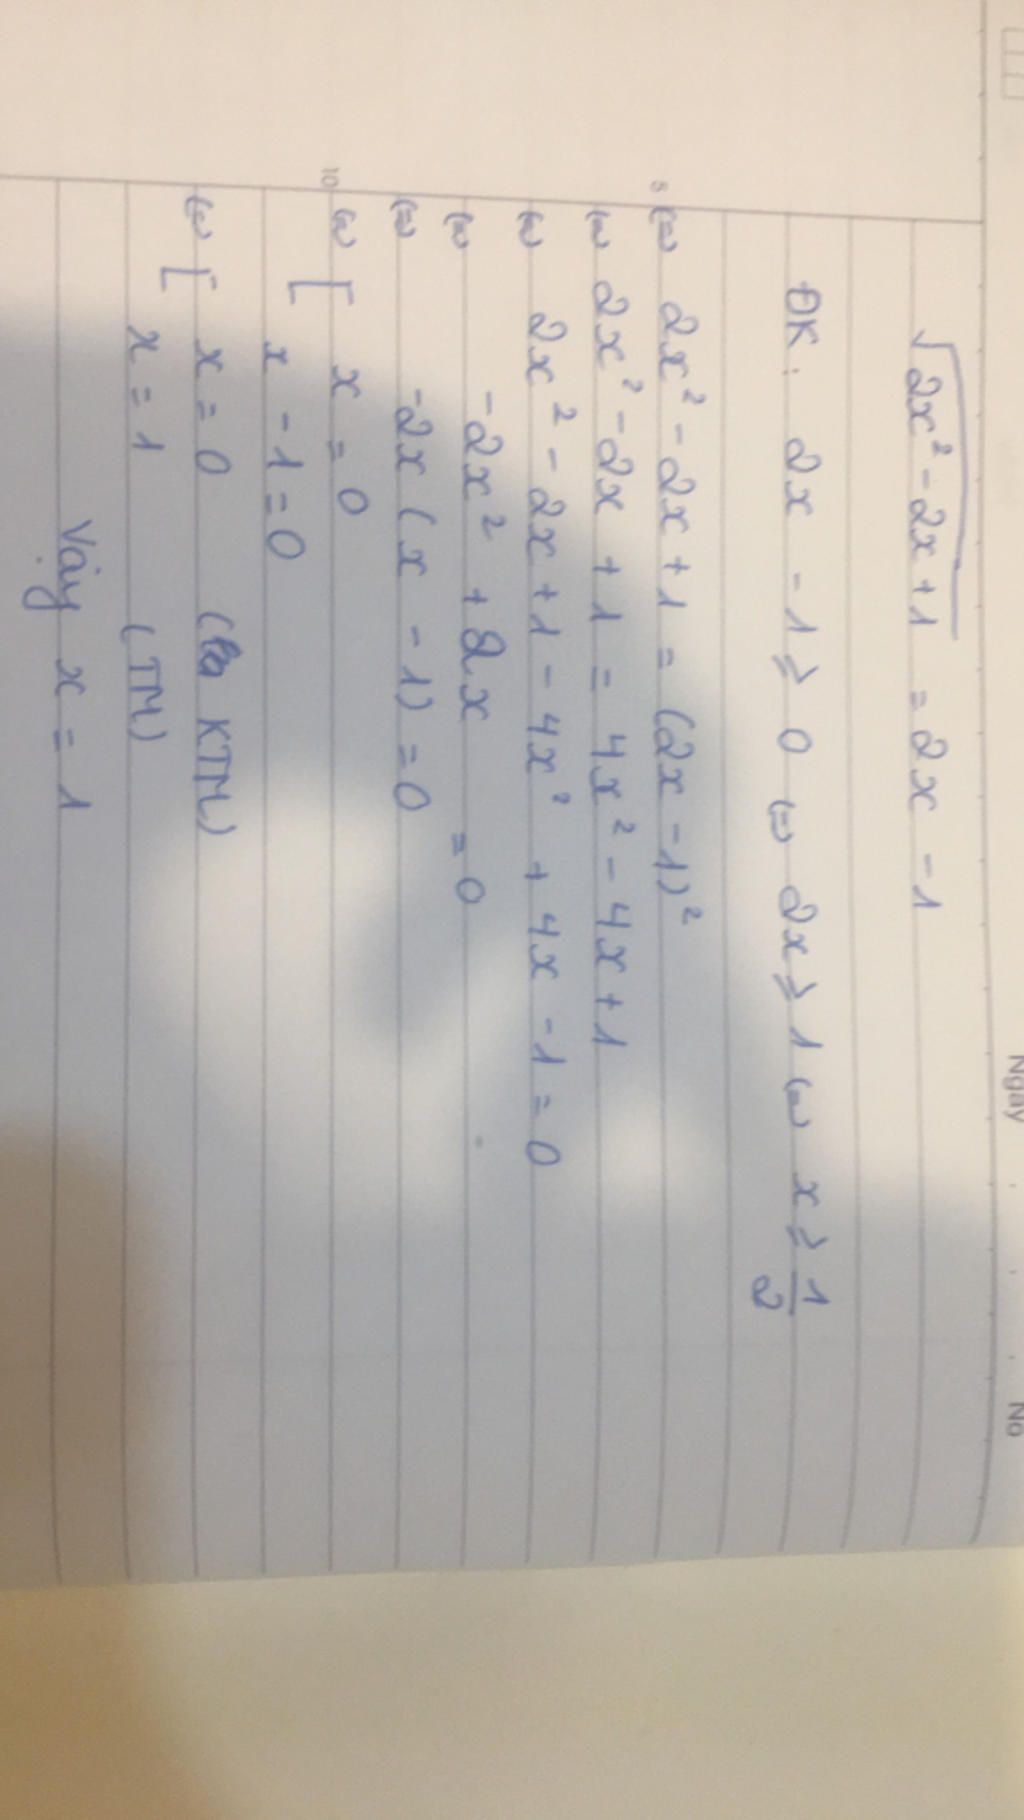 Ngày No
√2x² - 2x + 1 = 2x - 1
ĐK: 2x - 1 ≥ 0 (=) 2x ≥ 1 (=) x ≥ 1/2
5 (=) 2x² - 2x + 1 = (2x - 1)²
(=) 2x² - 2x + 1 = 4x² - 4x + 1
(=) 2x² - 2x + 1 - 4x² + 4x - 1 = 0
(=) -2x² + 2x = 0
(=) -2x (x - 1) = 0
10 (=) [ x = 0
x - 1 = 0
(=) [ x = 0 (KTM)
x = 1 (TM)
Vậy x = 1